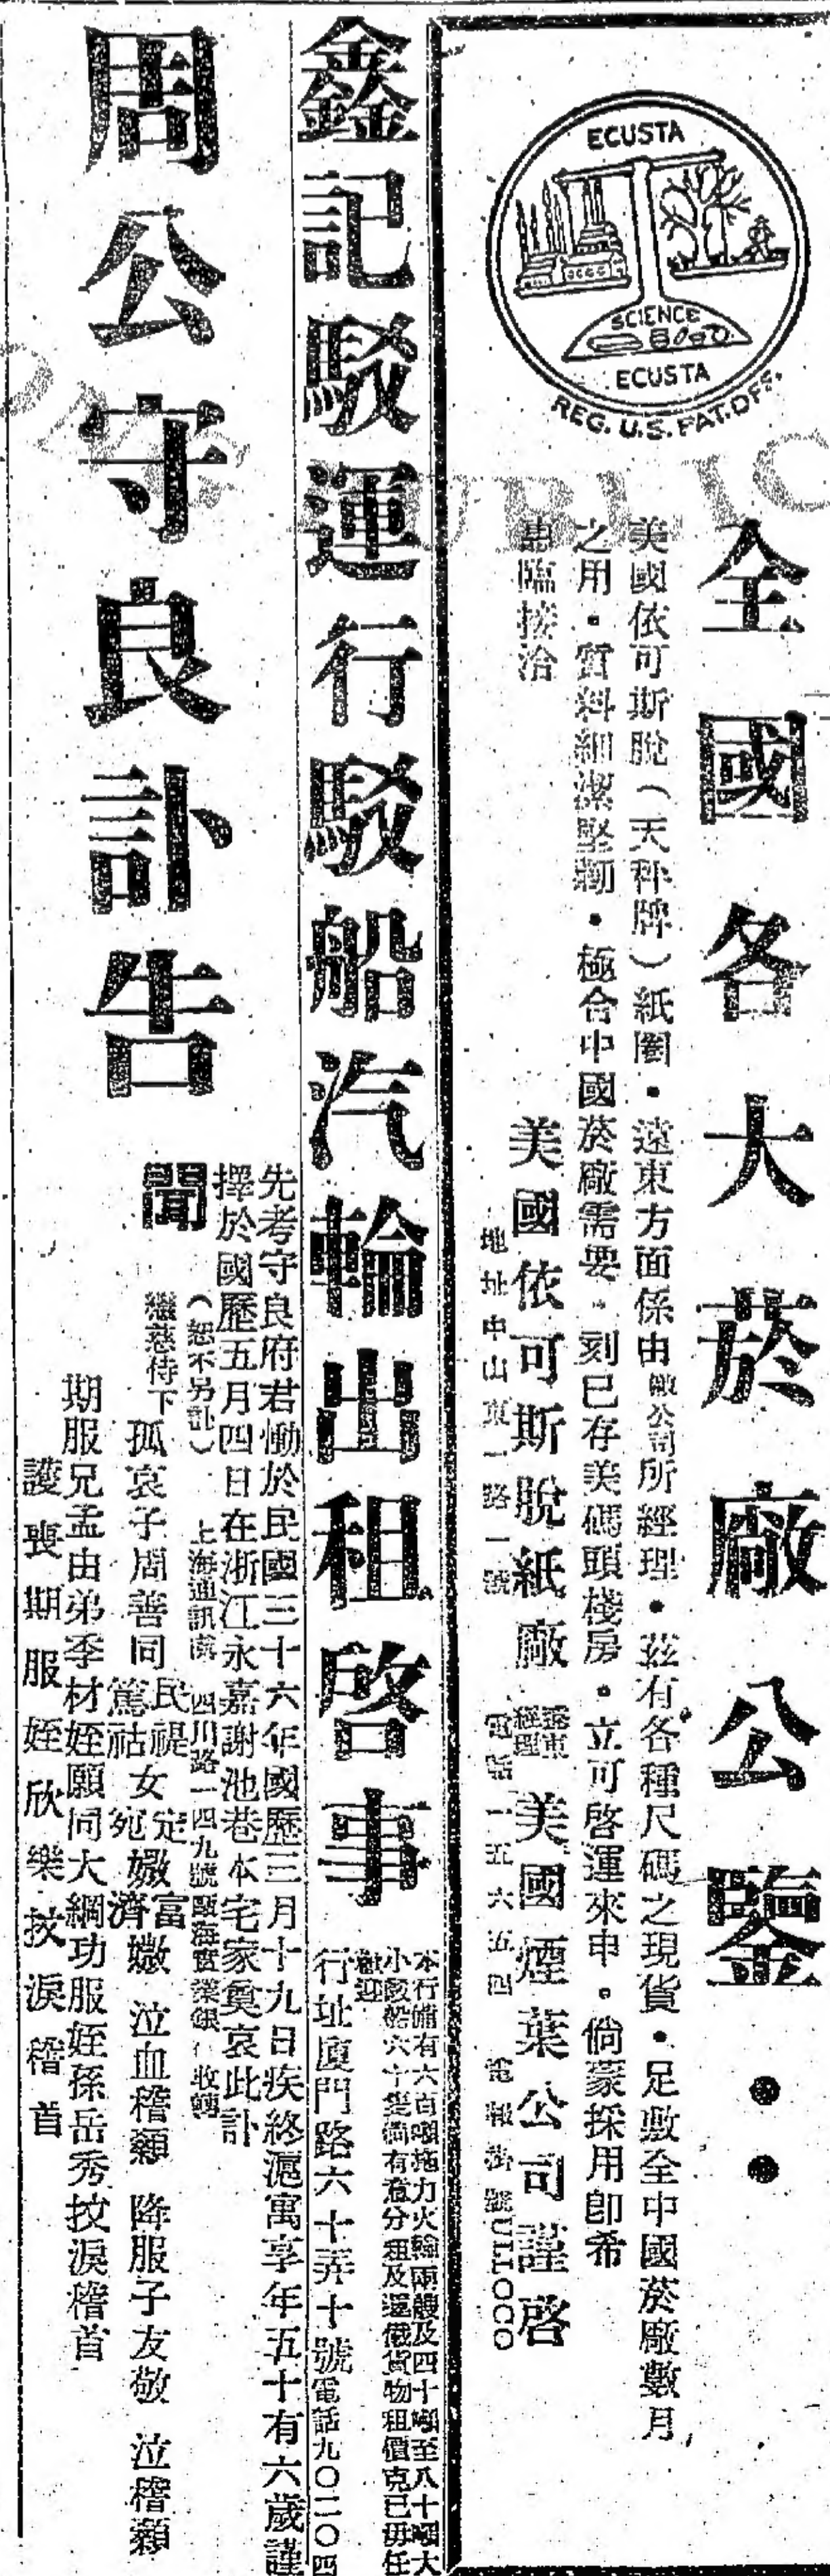 ECUSTA
SCIENCE
ECUSTA
REG. U.S. PAT. OFF.
全國各大菸廠公鑒：
美國依可斯脫（天秤牌）紙圈・遠東方面係由敝公司所經理・茲有各種尺碼之現貨・足敷全中國菸廠數月
之用・質料細潔堅韌・極合中國菸廠需要・刻已存美碼頭棧房・立可啓運來申・倘蒙採用卽希
惠臨接洽
美國依可斯脫紙廠 遠東經理 美國煙葉公司謹啓
地址中山東一路一號 電話一五六五四 電報掛號
鑫記駁運行駁船汽輪出租啓事
本行備有六百噸拖力火輪兩艘及四十噸至八十噸大
小駁船六十隻備有意分租及運儎貨物租價克已毋任
歡迎
行址廈門路六十弄十號電話九〇二〇四
周公守良訃告
先考守良府君慟於民國三十六年國歷三月十九日疾終滬寓享年五十有六歲謹
擇於國歷五月四日在浙江永嘉謝池巷本宅家奠哀此訃
聞
（恕不另訃） 上海通訊處 四川路一四九號甌海實業銀行收轉
繼慈侍下 孤哀子周善同 民禔 篤祜 女 定 宛 媺 富 濟 媺 泣血稽顙 降服子友敬 泣稽顙
期服兄孟由弟季材姪願同大綱功服姪孫岳秀抆淚稽首
護喪期服姪欣樂抆淚稽首